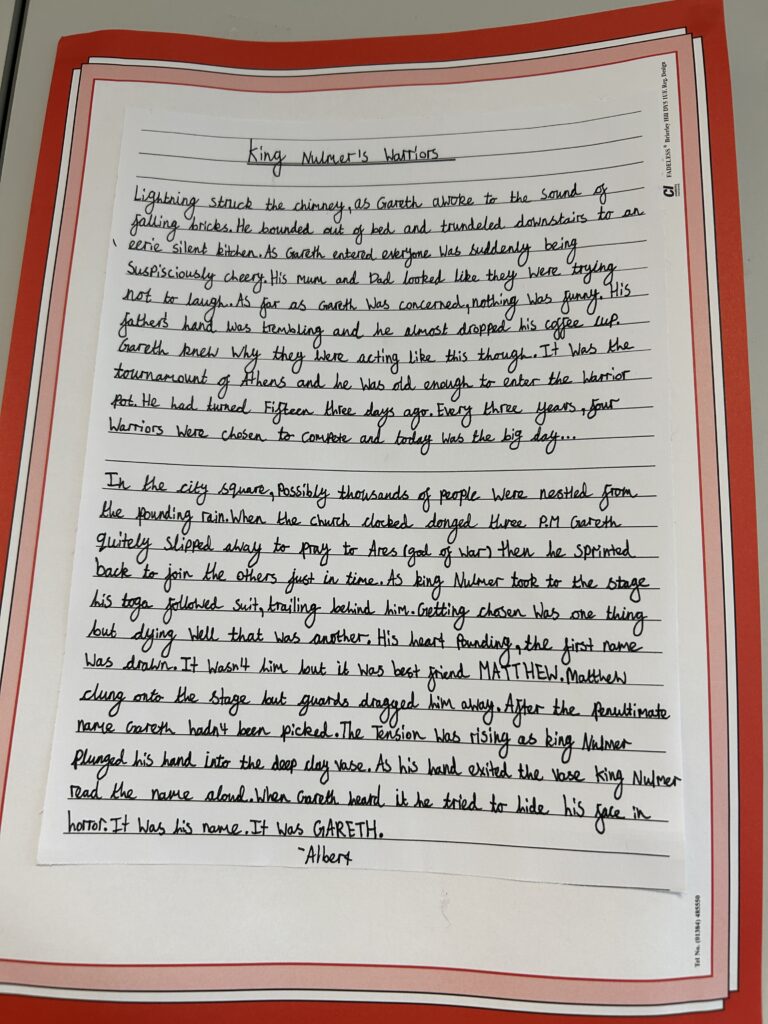 King Nulmer's Warriors
Lightning struck the chimney, as Gareth awoke to the sound of
falling bricks. He bounded out of bed and trundeled downstairs to an
eerie silent kitchen. As Gareth entered everyone was suddenly being
suspisciously cheery. His mum and Dad looked like they were trying
not to laugh. As far as Gareth was concerned, nothing was funny. His
fathers hand was trembling and he almost dropped his coffee cup.
Gareth knew why they were acting like this though. It was the
tournamount of Athens and he was old enough to enter the warrior
pot. He had turned Fifteen three days ago. Every three years, four
warriors were chosen to compete and today was the big day...
In the city square, possibly thousands of people were nestled from
the pounding rain. When the church clocked donged three P.M Gareth
quitely slipped away to pray to Ares (god of war) then he sprinted
back to join the others just in time. As king Nulmer took to the stage
his toga followed suit, trailing behind him. Getting chosen was one thing
but dying well that was another. His heart pounding, the first name
was drawn. It wasn't him but it was best friend MATTHEW. Matthew
clung onto the stage but guards dragged him away. After the penultimate
name Gareth hadn't been picked. The Tension was rising as king Nulmer
plunged his hand into the deep clay vase. As his hand exited the vase king Nulmer
read the name aloud. When Gareth heard it he tried to hide his face in
horror. It was his name. It was GARETH.
~Albert
CI FADELESS® Brierley Hill DY5 1UX Reg. Design
Tel No. (01384) 485550